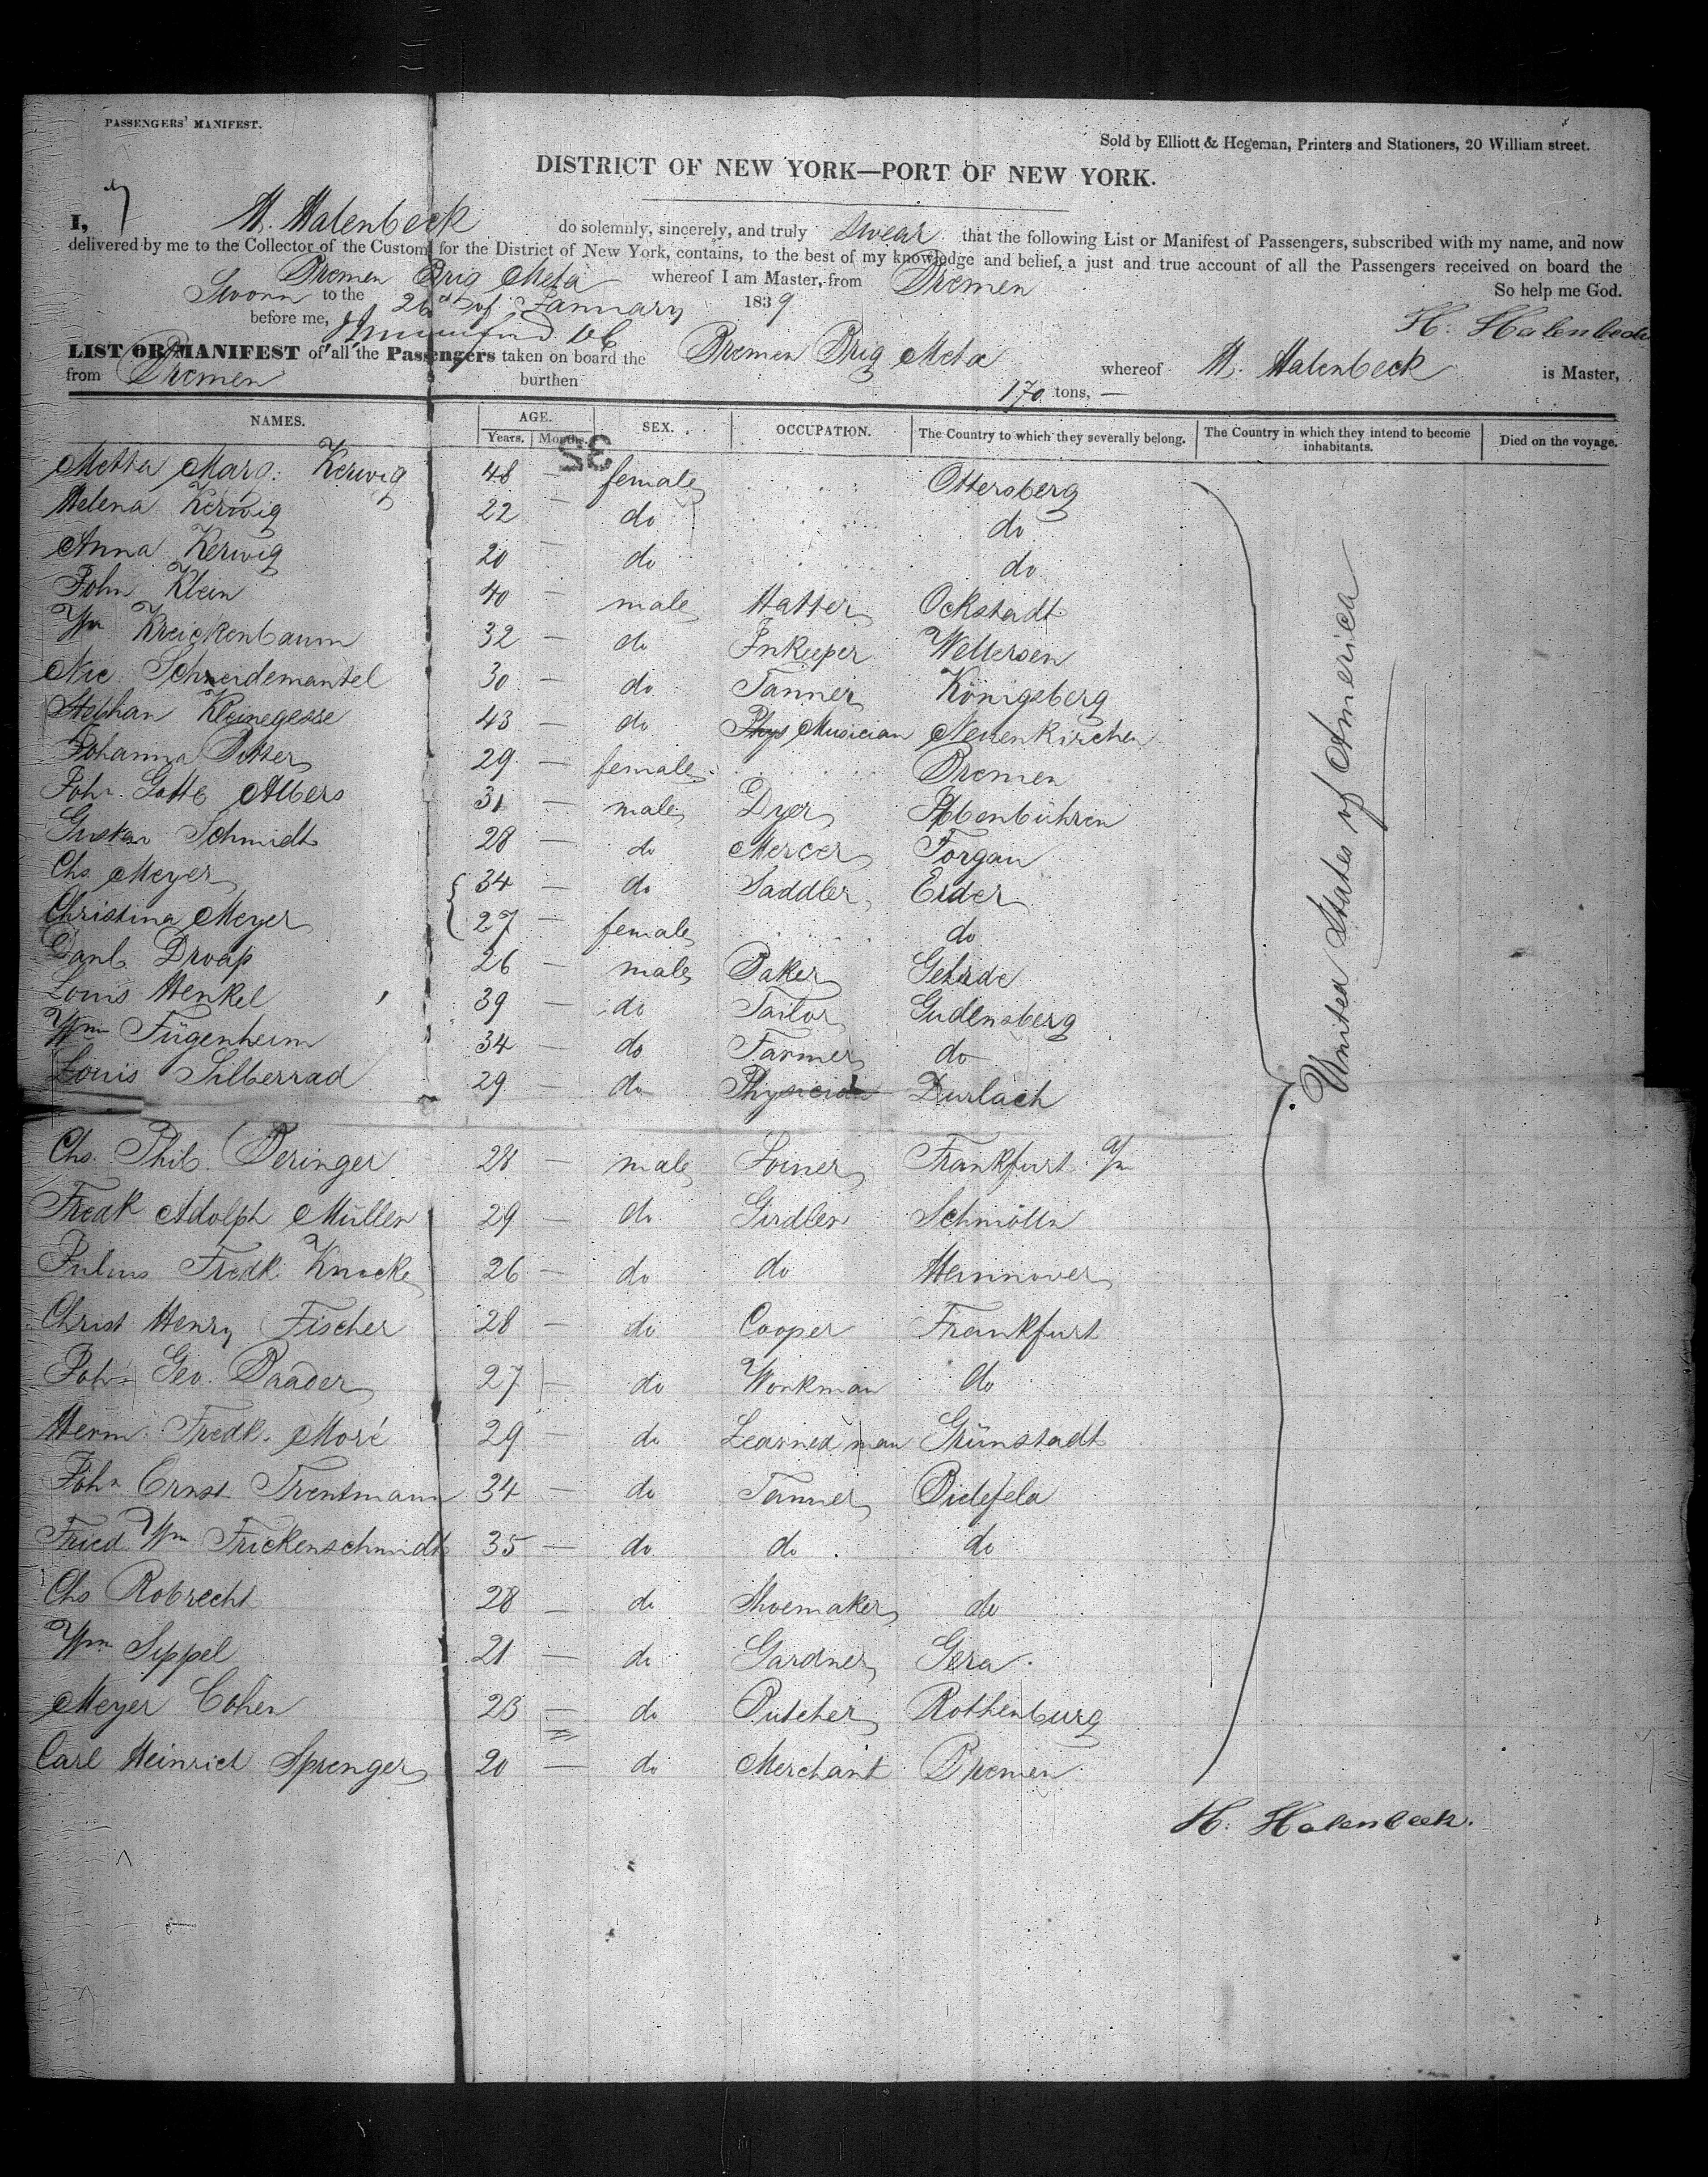 PASSENGERS' MANIFEST.
Sold by Elliott & Hegeman, Printers and Stationers, 20 William street.
DISTRICT OF NEW YORK—PORT OF NEW YORK.
I, H. Halenbeck do solemnly, sincerely, and truly swear that the following List or Manifest of Passengers, subscribed with my name, and now
delivered by me to the Collector of the Customs for the District of New York, contains, to the best of my knowledge and belief, a just and true account of all the Passengers received on board the
Bremen Brig Meta whereof I am Master, from Bremen
Sworn to the 26th of January 1839 So help me God.
before me, H. Halenbeck
LIST OR MANIFEST of all the Passengers taken on board the Bremen Brig Meta whereof H. Halenbeck is Master,
from Bremen burthen 170 tons, —
NAMES. AGE. SEX. OCCUPATION. The Country to which they severally belong. The Country in which they intend to become inhabitants. Died on the voyage.
Years. Months.
32
Metta Marg. Kerwig 48 — female Ottersberg
Helena Kerwig 22 — do do
Anna Kerwig 20 — do do
John Klein 40 — male Hatter Ockstadt
Wm Kreickenbaum 32 — do Inkeeper Wellersen
Nic. Schneidemantel 30 — do Tanner Königsberg
Stephan Kleinegesse 43 — do Phys Musician Neuenkirchen
Johanna Ritter 29 — female Bremen
Joh. Gottl Albers 31 — male Dyer Ibbenbühren
Gustav Schmidt 28 — do Mercer Torgau
Chs. Meyer 34 — do Saddler Eider
Christina Meyer 27 — female do
Danl. Droap 26 — male Baker Gehrde
Louis Henkel 39 — do Tailor Gudensberg
Wm Fügenheim 34 — do Farmer do
Louis Silberrad 29 — do Physician Durlach
Chs. Phil. Beringer 28 — male Joiner Frankfurt a/m
Fredk Adolph Müller 29 — do Girdler Schmölln
Julius Fredk. Knocke 26 — do do Hannover
Christ Henry Fischer 28 — do Cooper Frankfurt
Joh. Geo. Baader 27 — do Workman do
Herm. Fredk. Moré 29 — do Learned man Grünstadt
Joh. Ernst Trentmann 34 — do Tanner Bielefeld
Fried. Wm Frickenschmidt 35 — do do do
Chs Robrecht 28 — do Shoemaker do
Wm Sippel 21 — do Gardner Gera
Meyer Cohen 23 — do Butcher Rothenburg
Carl Heinrich Sprenger 20 — do Merchant Bremen
United States of America
H. Halenbeck.